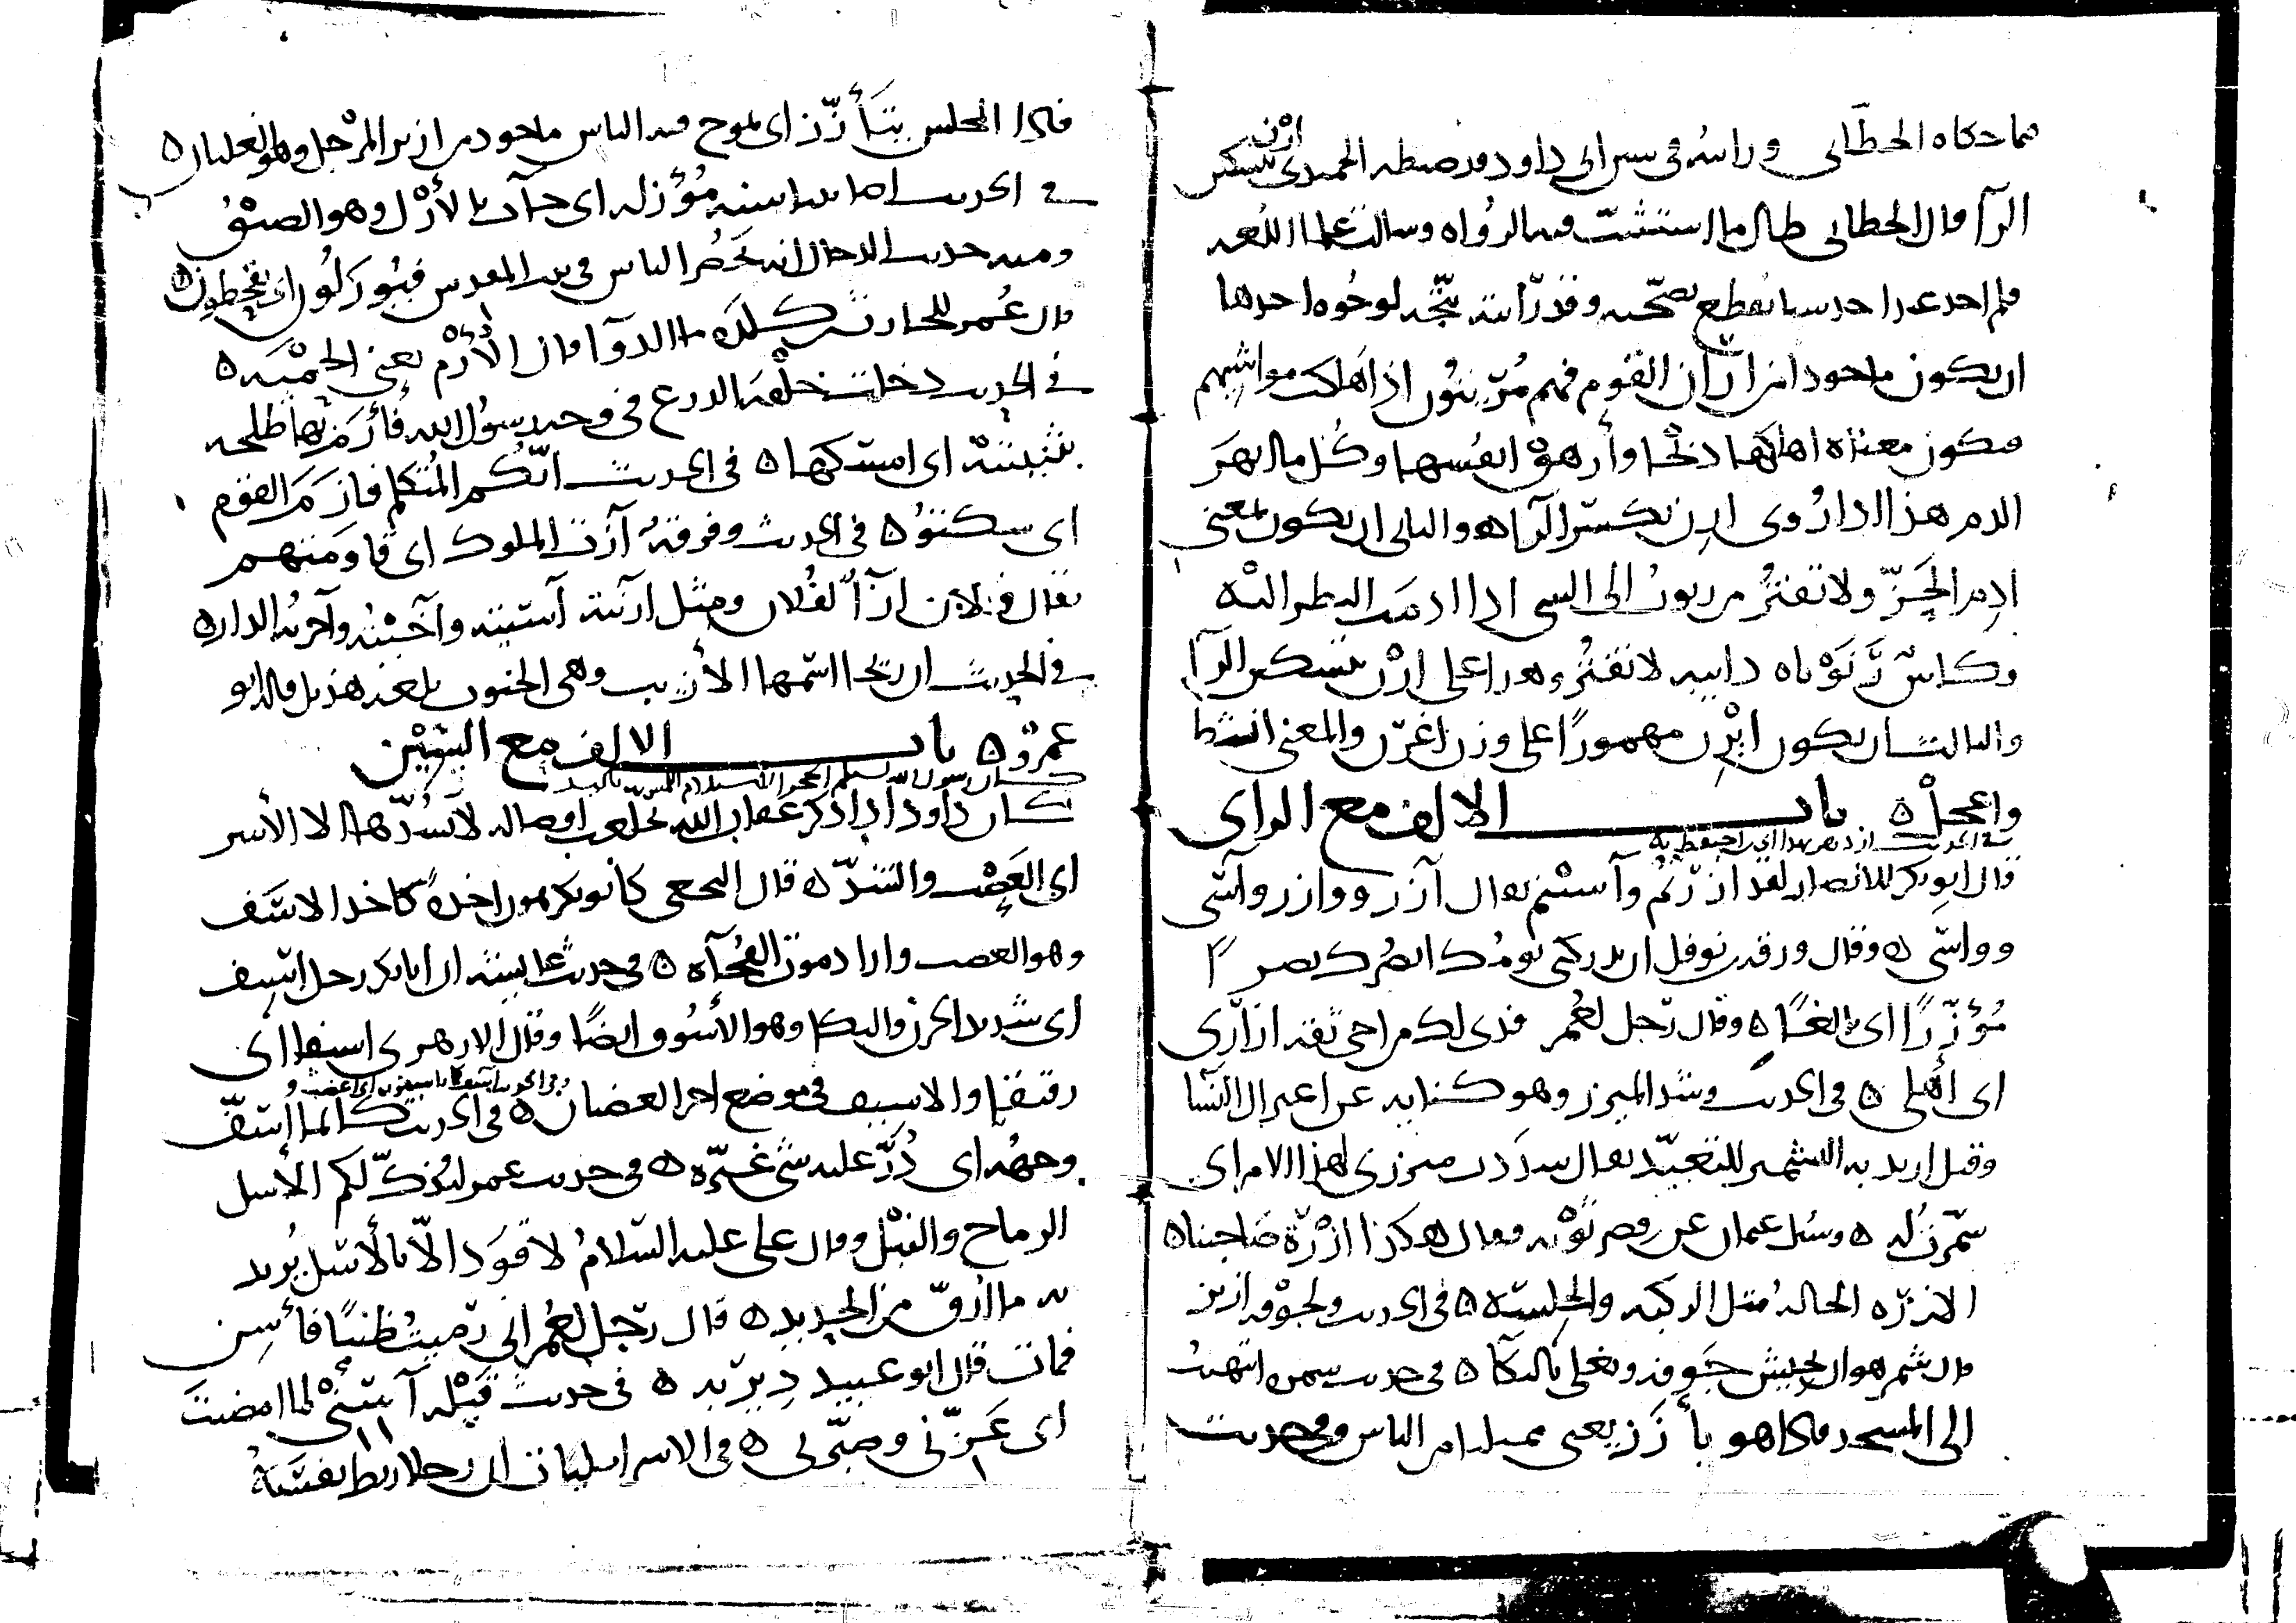 مما حكاه الخطابي ورأيته في سنن أبي داود قد ضبطه الحميدي أرْن بتسكين
الرآ قال الخطابي طال ما استثبت فيه الرواه وسالت علما اللغه
فلم اجد عند احد شيا يقطع بصحته وقد رأيته يتجه لوجوه احدها
ان يكون ماخوذا من اران القوم فهم مرينون اذا هلكت مواشيهم
فيكون معناه اهلكها ذبحا وأرهق انفسها وكل ما انهر
الدم هذا اذا روي ارِن بكسر الرآ ٥ والثاني ان يكون بمعنى
ادم الحز ولا تفتر من رنوت الى الشي اذا ادمت النظر اليه
وكاس رنوناه دايمه لا تفتر وهذا على ارْن بتسكين الرآ
والثالث ان يكون ائرن مهموزا على وزن اغرن والمعنى انشط
واعجل ٥ باب الالف مع الزاي
في الحديث ازدهر بهذا اي احتفظ به
قال ابو بكر للانصار لقد ازرتم وآسيتم يقال آزر ووازر وآسى
وواسى ٥ وقال ورقه بن نوفل ان يدركني يومك انصرك نصرا
مؤزرا اي بالغا ٥ وقال رجل لعمر فدى لك من اخي ثقه ازاري
اي اهلي ٥ في الحديث وشد الميزر وهو كنايه عن اعتزال النسا
وقيل اريد به التشمير للتعبد يقال شددت ميزري لهذا الامر اي
شمرت له ٥ وسئل عثمان عن قصر ثوبه فقال هكذا ازرة صاحبنا ٥
الازره الحاله مثل الركبه والجلسه ٥ في الحديث ولجوفه ازيز
قال شمر هو ان يجيش جوفه ويغلي بالبكآ ٥ في حديث سمره انتهيت
الى المسجد فاذا هو بأزز يعني ممتلئا من الناس وفي حديث
فاذا المجلس يتأزز اي يموج فيه الناس ماخوذ من ازيز المرجل وهو الغليان ٥
في الحديث اصابتنا سنه مؤزله اي جآت بالأزل وهو الضيق
ومنه حديث الدجال انه يحصر الناس في بيت المقدس فيؤزلون اي يقحطون ٥
قال عمر للحارث بن كلده ما الدوآ قال الأزم يعني الحميه ٥
في الحديث دخلت حلقه الدرع في وجه رسول الله فأزم بها طلحه
بثنيته اي امسكها ٥ في الحديث ايكم المتكلم فازم القوم
اي سكتوا ٥ في الحديث وفرقه آزت الملوك اي قاومتهم
يقال فلان ازآ لفلان ومثل ازيته آسيته وآخيته وآجرته الدار ٥
في الحديث ان ريحا اسمها الأزيب وهي الجنوب بلغه هذيل قاله ابو
عمرو ٥ باب الالف مع السين
كان رسول الله يستلم الحجر
كان داود اذا ذكر عقاب الله تخلعت اوصاله لا يشدها الا الأسر
اي العصب والشد ٥ قال النخعي كانوا يكرهون اخذه كاخذ الاسف
وهو الغضب وارادموت الفجآه ٥ في حديث عايشه ان ابا بكر رجل اسيف
اي شديد الحزن والبكا وهو الأسوف ايضا وقال الازهري اسيفا اي
رقيقا والاسيف في موضع اخر الغضبان ٥ في الحديث كانما أسف
وجهه اي ذر عليه شي غيره ٥ في حديث عمر ليذك لكم الأسل
الرماح والنبل وقال علي عليه السلام لا قود الا بالأسل يريد
به ما ارق من الحديد ٥ قال رجل لعمر اني رميت ظبيا فأسن
فمات قال ابو عبيد دير به ٥ في حديث قيله آسني لما امضيت
اي عزني وصبرني ٥ في الاسرايليات ان رجلا ربط نفسه